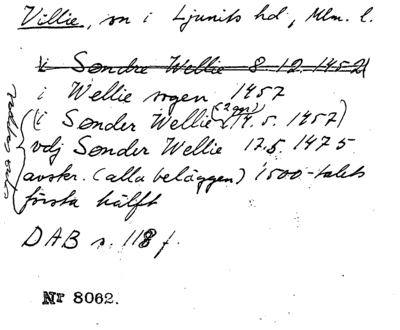 Villie, sn i Ljunits hd, Mlm. l.
i Søndre Wellie 8.12.1452
i Wellie sogen 1457
(i Sønder Wellie (2 ggr) 14.5.1457)
vdj Sønder Wellie 17.5 1475
avskr. (alla beläggen) 1500-talets
första hälft
DAB s. 118 f.
Nr 8062.